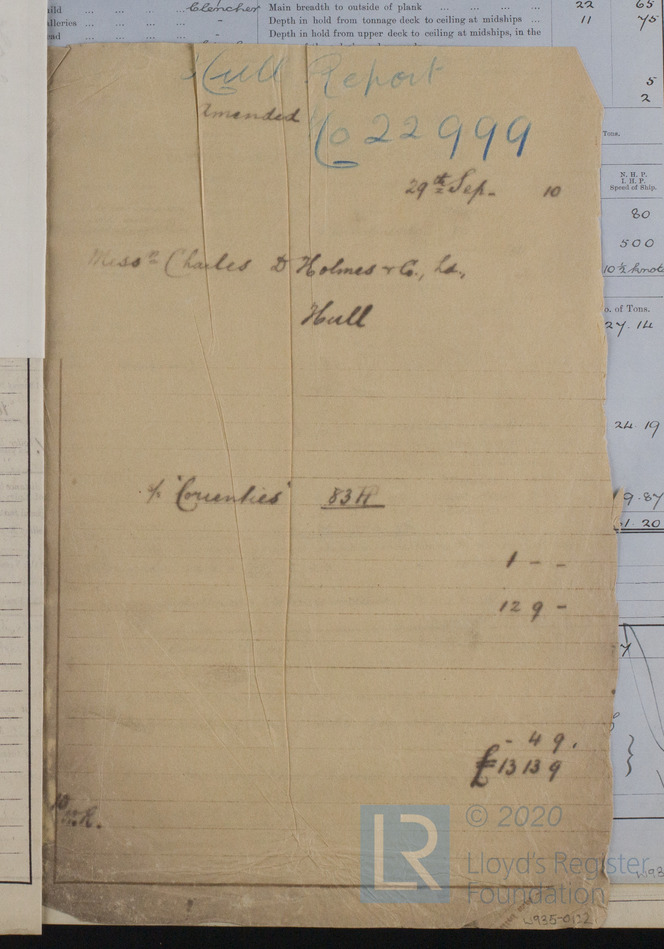 Clencher Main breadth to outside of plank ... ... ... ... 22 65
Depth in hold from tonnage deck to ceiling at midships ... 11 75
Depth in hold from upper deck to ceiling at midships, in the
5
2
Hull Report
Amended
No 22999
Tons.
29th Sep. 10
N. H. P.
I. H. P.
Speed of Ship.
80
500
10½ knots
Messrs Charles D Holmes & Co., Ld.,
Hull
o. of Tons.
27.14
24.19
9.87
61.20
83 H
1 - -
12 9 -
- 4 9.
£13 13 9
© 2020
LR
Lloyd's Register
Foundation
W935-0122